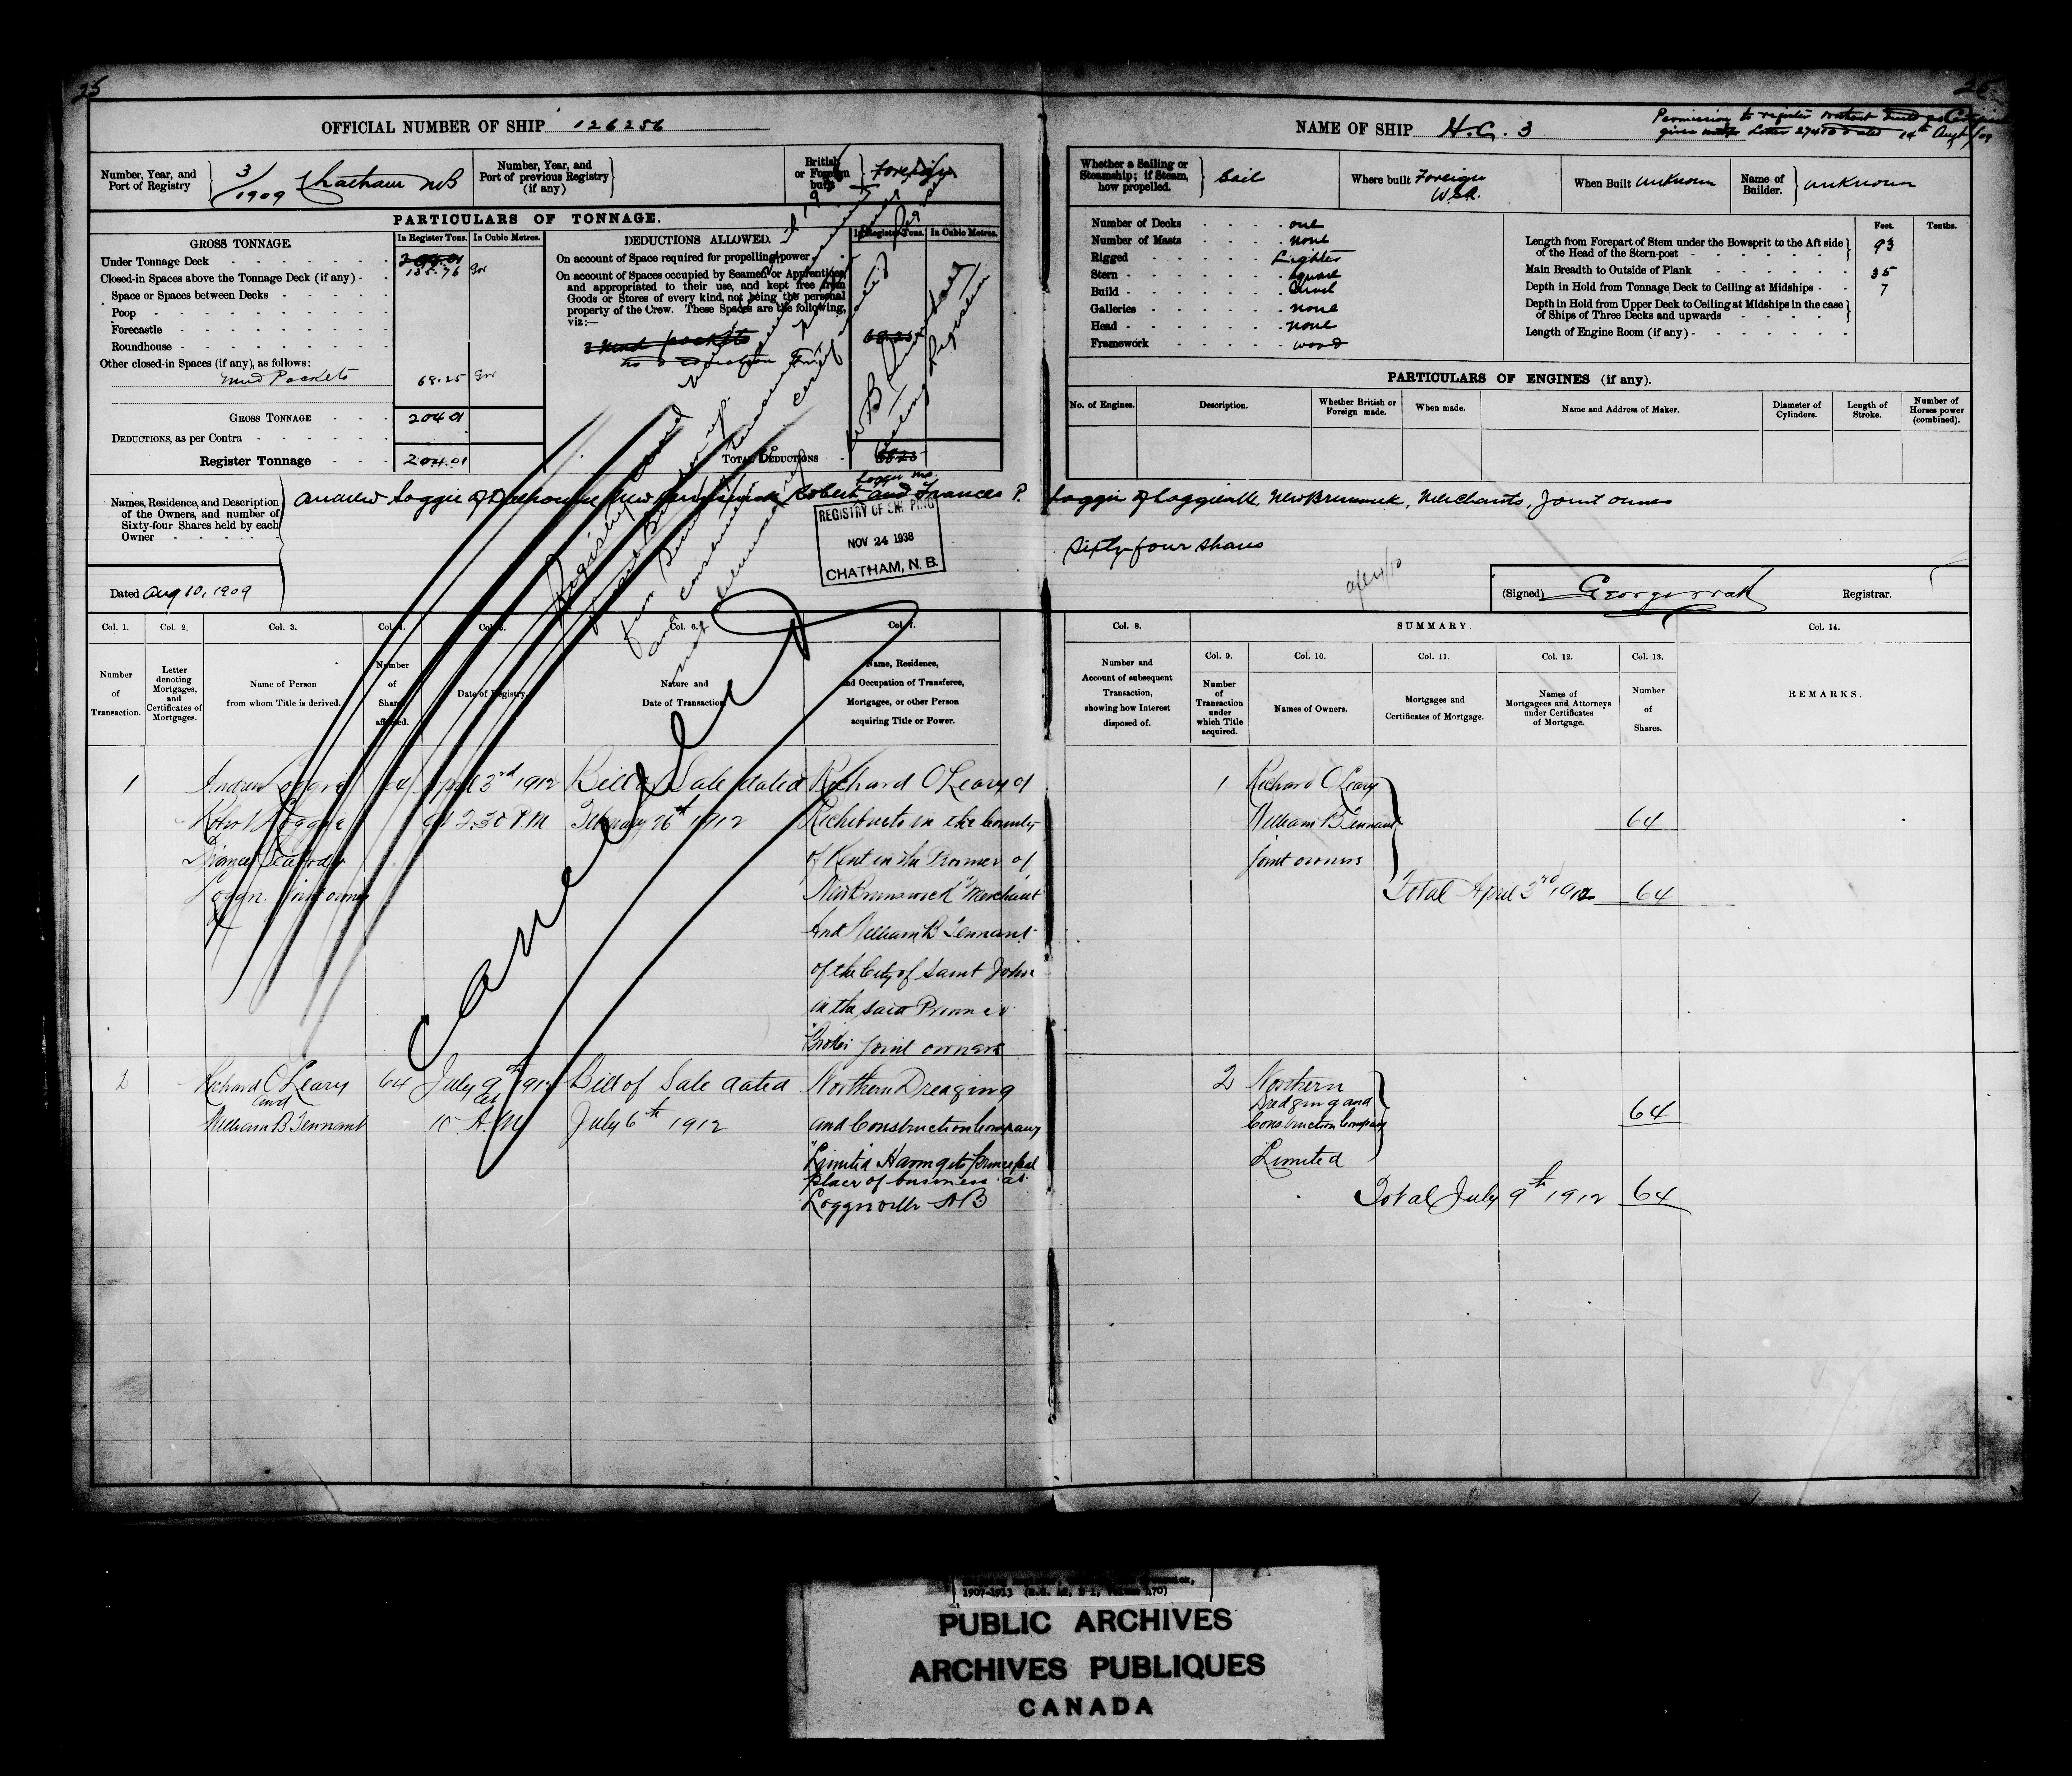 25
25
OFFICIAL NUMBER OF SHIP 126256
NAME OF SHIP H.G. 3
Permission to register without
given Letter 27410 dated 14th Augt/09
Number, Year, and Port of Registry
3/1909 Chatham NB
Number, Year, and Port of previous Registry (if any)
British or Foreign built
Foreign
Whether a Sailing or Steamship; if Steam, how propelled.
Sail
Where built Foreign
U.S.A.
When Built unknown
Name of Builder.
unknown
PARTICULARS OF TONNAGE.
GROSS TONNAGE.
In Register Tons.
In Cubic Metres.
Under Tonnage Deck
204.01
135.76
Closed-in Spaces above the Tonnage Deck (if any) -
Space or Spaces between Decks
Poop
Forecastle
Roundhouse
Other closed-in Spaces (if any), as follows:
Mud Pockets 68.25
GROSS TONNAGE 204.01
DEDUCTIONS, as per Contra
Register Tonnage 204.01
DEDUCTIONS ALLOWED.
In Register Tons.
In Cubic Metres.
On account of Space required for propelling power
On account of Spaces occupied by Seamen or Apprentices, and appropriated to their use, and kept free from Goods or Stores of every kind, not being the personal property of the Crew. These Spaces are the following, viz:—
3 Mud pockets 68.25
no deduction
TOTAL DEDUCTIONS 68.25
Number of Decks one
Number of Masts none
Rigged Lighter
Stern square
Build carvel
Galleries none
Head none
Framework wood
Feet.
Tenths.
Length from Forepart of Stem under the Bowsprit to the Aft side of the Head of the Stern-post 93
Main Breadth to Outside of Plank 35
Depth in Hold from Tonnage Deck to Ceiling at Midships 7
Depth in Hold from Upper Deck to Ceiling at Midships in the case of Ships of Three Decks and upwards
Length of Engine Room (if any) -
PARTICULARS OF ENGINES (if any).
No. of Engines.
Description.
Whether British or Foreign made.
When made.
Name and Address of Maker.
Diameter of Cylinders.
Length of Stroke.
Number of Horses power (combined).
Names, Residence, and Description of the Owners, and number of Sixty-four Shares held by each Owner
Andrew Loggie of Dalhousie New Brunswick Robert Loggie and Frances P. Loggie of Loggieville, New Brunswick, Merchants, Joint owners
Sixty-four shares
REGISTRY OF SHIPPING
NOV 24 1938
CHATHAM, N. B.
Dated Aug 10, 1909
(Signed) George Watt Registrar.
Cancelled
Col. 1.
Col. 2.
Col. 3.
Col. 4.
Col. 5.
Col. 6.
Col. 7.
Col. 8.
SUMMARY.
Col. 9.
Col. 10.
Col. 11.
Col. 12.
Col. 13.
Col. 14.
Number of Transaction.
Letter denoting Mortgages, and Certificates of Mortgages.
Name of Person from whom Title is derived.
Number of Shares affected.
Date of Registry.
Nature and Date of Transaction.
Name, Residence, and Occupation of Transferee, Mortgagee, or other Person acquiring Title or Power.
Number and Account of subsequent Transaction, showing how Interest disposed of.
Number of Transaction under which Title acquired.
Names of Owners.
Mortgages and Certificates of Mortgage.
Names of Mortgagees and Attorneys under Certificates of Mortgage.
Number of Shares.
REMARKS.
1 Andrew Loggie 64 April 3rd 1912 Bill of Sale dated Richard O'Leary of
Robt Loggie at 2.30 P.M. February 26th 1912 Richibucto in the County
& Frances Peabody of Kent in the Province of
Loggie joint owners New Brunswick "Merchant"
And William B Tennant
of the City of Saint John
in the said Province
"Broker" joint owners
1 Richard O'Leary
William B Tennant 64
joint owners
Total April 3rd 1912 64
2 Richard O'Leary 64 July 9th 1912 Bill of Sale dated Northern Dredging
and at
William B Tennant 10 A.M. July 6th 1912 and Construction Company
Limited Having its principal
place of business at
Loggieville NB
2 Northern
Dredging and 64
Construction Company
Limited
Total July 9th 1912 64
1907-1913
PUBLIC ARCHIVES
ARCHIVES PUBLIQUES
CANADA